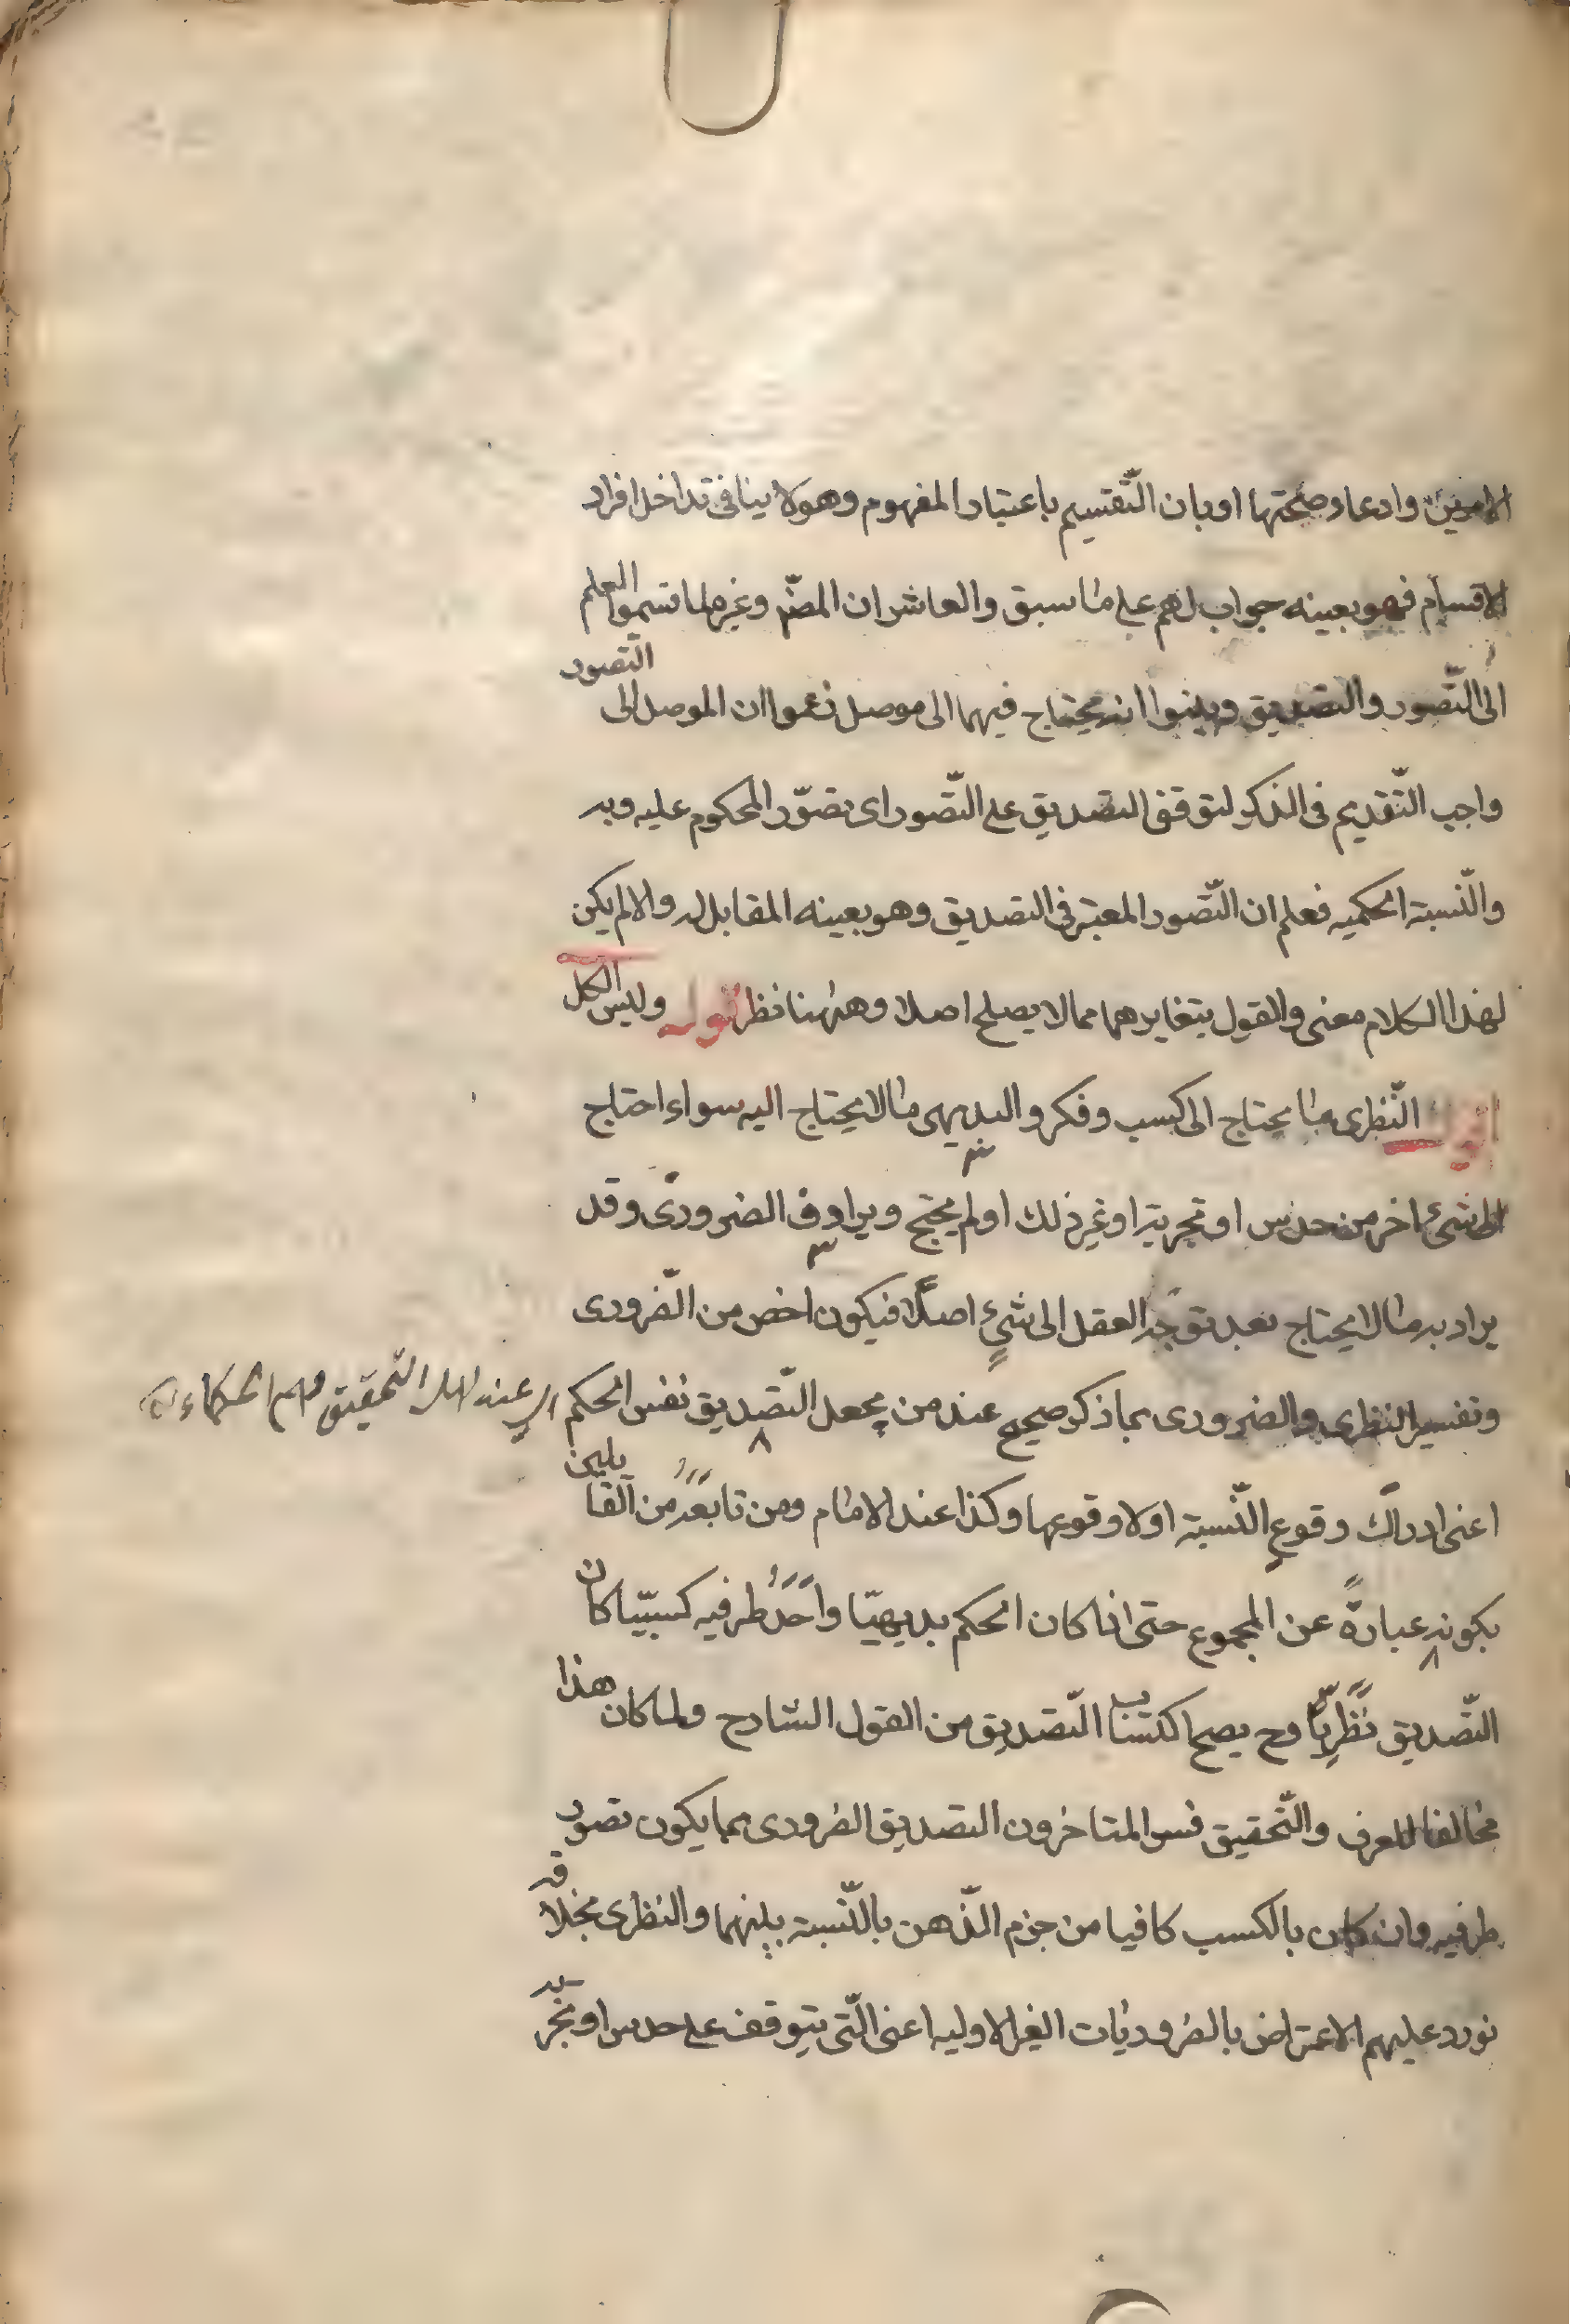 الامرين وادعاء صحتها او بان التّقسيم باعتبار المفهوم وهو لا ينافى تداخل افراد
الاقسام فهو بعينه جواب لهم على ما سبق والعاشر ان المصّ وغيره لما قسموا العلم
الى التّصور والتصديق وبينوا انه يحتاج فيهما الى موصل زعموا ان الموصل الى التّصور
واجب التّقديم فى الذكر لتوقف التصديق على التّصور اى تصوّر المحكوم عليه وبه
والنّسبة الحكميه فعلم ان التّصور المعتبر فى التصديق وهو بعينه المقابل له والا لم يكن
لهذا الكلام معنى والقول بتغايرهما مما لا يصلح اصلا وههنا نظر قوله وليس الكل
اقول النّظرى ما يحتاج الى كسب وفكر والبديهى ما لا يحتاج اليه سواء احتاج
الى شئ اخر من حدس او تجربة او غير ذلك او لم يحتج ويرادف الضرورى وقد
يراد به ما لا يحتاج بعد توجّه العقل الى شئٍ اصلًا فيكون اخص من الضّرورى
وتفسير النظرى والضرورى بما ذكر صحيح عند من يجعل التّصديق نفس الحكم
اى عند اهل التّحقيق وهم الحكماء
اعنى ادراك وقوع النّسبة اولا وقوعها وكذا عند الامام ومن تابعه من القايلين
بكونه عبارةً عن المجموع حتى اذا كان الحكم بديهيّا واحَدُ طرفيه كسبيّا كان
التّصديق نَظَرِيّاً وح يصح اكتساب التّصديق من القول الشارح ولما كان هذا
مخالفا للعرف والتّحقيق فسر المتاخرون التصديق الضرورى بما يكون تصور
طرفيه وان كان بالكسب كافيا من جزم الذّهن بالنّسبة بينهما والنظرى بخلافه
نورد عليهم الاعتراض بالضروريات الغير الاوليه اعنى الّتى يتوقف على حدس او تجربة